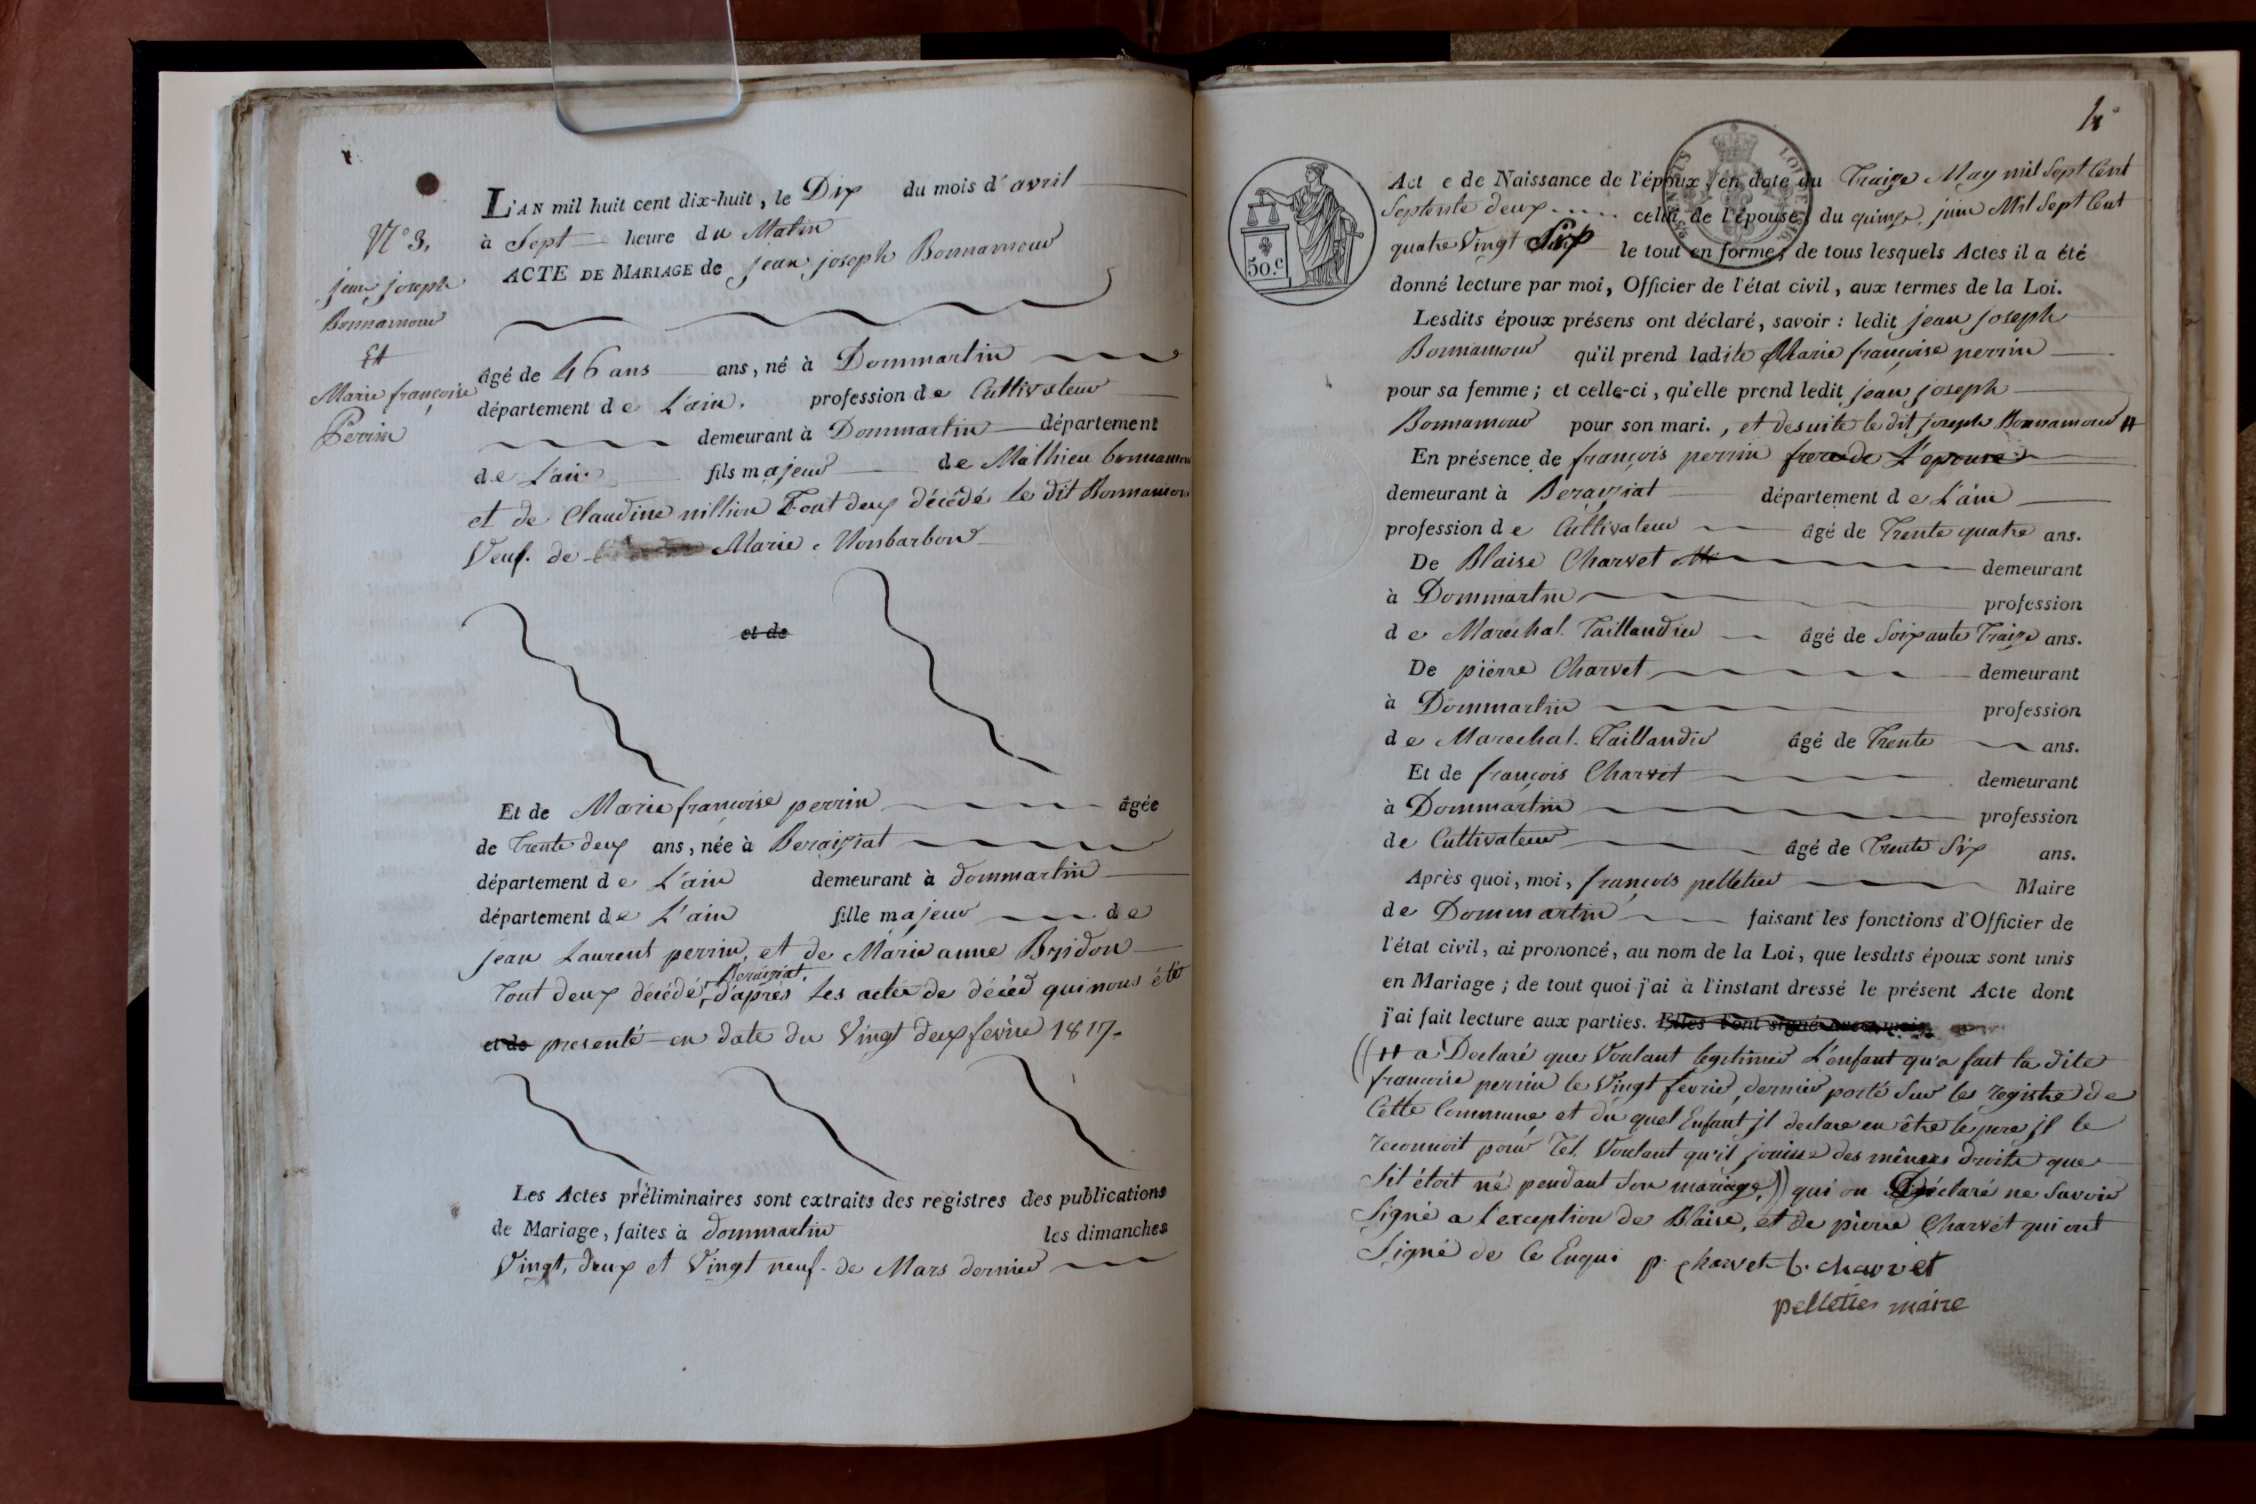 L'AN mil huit cent dix-huit, le Dix du mois d'avril
N.° 3.
à Sept heure du Matin
ACTE DE MARIAGE de jean joseph Bonnamour
jean joseph
Bonnamour
Et
Marie françoise
Perrin
âgé de 46 ans ans, né à Dommartin
département de L'ain. profession de Cultivateur
demeurant à Dommartin département
de L'ain fils majeur de Mathieu bonnamour
et de Claudine million Tout deux décédé le dit Bonnamour
Veuf. de Marie Monbarbon
et de
Et de Marie françoise perrin âgée
de Trente deux ans, née à Beraiziat
département de L'ain demeurant à dommartin
département de L'ain fille majeur de
jean Laurent perrin, et de Marie anne Brridon
Beraiziat.
Tout deux décédé, d'après les actes de décéd qui nous été
et de presenté en date du Vingt deux fevrie 1817.
Les Actes préliminaires sont extraits des registres des publications
de Mariage, faites à dommartin les dimanches
Vingt, deux et Vingt neuf. de Mars dernier
50.c
LOI DE 1816
Acte de Naissance de l'époux, en date du Traize May mil Sept Cent
Septente deux celui de l'épouse, du quinze juin Mil Sept Cent
quatre Vingt Six le tout en forme; de tous lesquels Actes il a été
donné lecture par moi, Officier de l'état civil, aux termes de la Loi.
Lesdits époux présens ont déclaré, savoir : ledit jean joseph
Bonnamour qu'il prend ladite Marie françoise perrin
pour sa femme; et celle-ci, qu'elle prend ledit jean joseph
Bonnamour pour son mari., et desuite le dit joseph Bonnamour #
En présence de françois perrin frere de L'epouse
demeurant à Beraysiat département de L'ain
profession de Cultivateur âgé de Trente quatre ans.
De Blaise Charvet demeurant
à Dommartin profession
de Marechal. Taillandier âgé de Soixante Traize ans.
De pierre Charvet demeurant
à Dommartin profession
de Marechal. Taillandier âgé de Trente ans.
Et de françois Charvet demeurant
à Dommartin profession
de Cultivateur âgé de Trente Six ans.
Après quoi, moi, françois pelletier Maire
de Dommartin faisant les fonctions d'Officier de
l'état civil, ai prononcé, au nom de la Loi, que lesdits époux sont unis
en Mariage; de tout quoi j'ai à l'instant dressé le présent Acte dont
j'ai fait lecture aux parties. Elles l'ont signé avec moi.
((# a Declaré que Voulant legitimer L'enfant qu'a fait la dite
françoise perrin le Vingt fevrier, dernier porté Sur les registre de
Cette Commune, et du quel Enfant jl declare en être le pere jl le
reconnoit pour Tel. Voulant qu'il jouisse des mêmes droits que
Sil étoit né pendant Son mariage.)) qui on Déclaré ne Savoir
Signé a l'exception de Blaise, et de pierre Charvet qui ont
Signé de Ce Enqui p. charvet b. charvet
pelletier maire